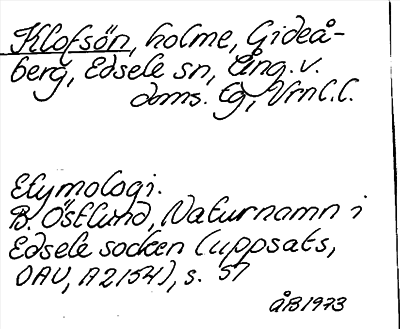 Klofsön, holme, Gideå-
berg, Edsele sn, Ång. v.
doms. lg, Vrnl. l.
Etymologi.
B. Östlund, Naturnamn i
Edsele socken (uppsats,
OAU, A2154), s. 57
åB1973